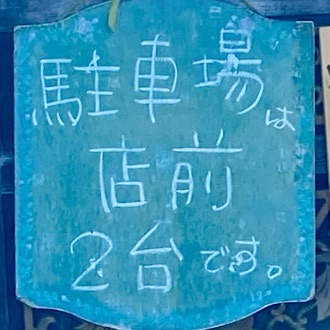 駐車場は
店前
2台です。